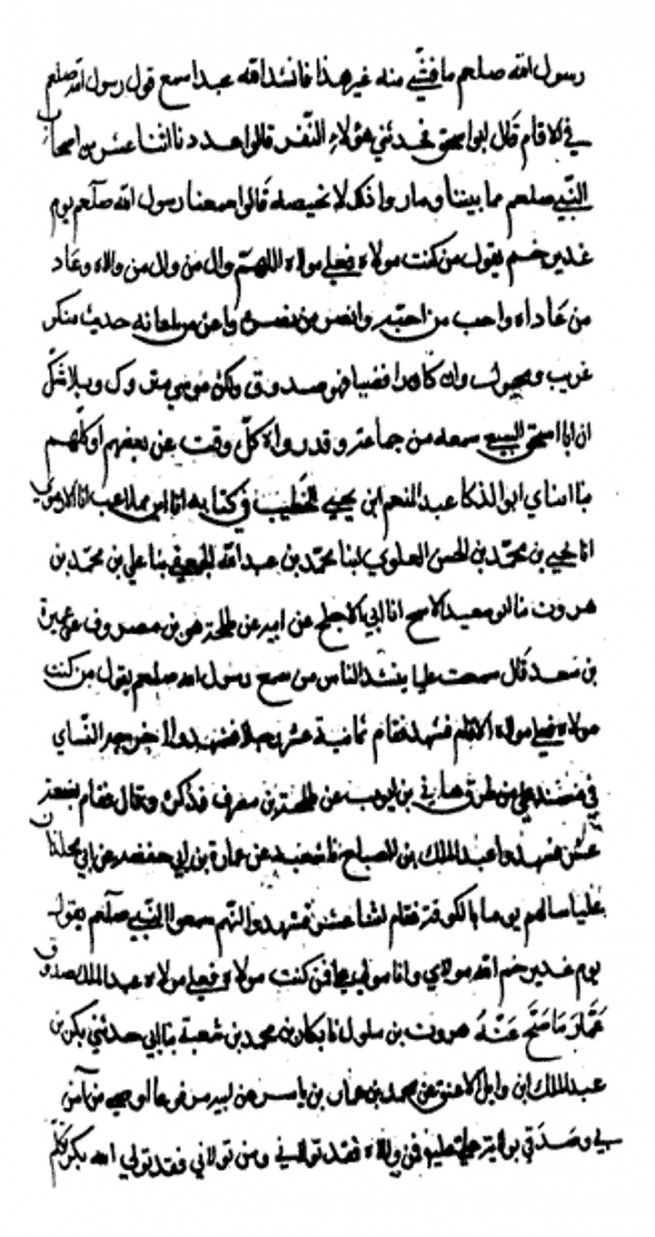 رسول الله صلعم ما فتئ منه غير هذا فانشد الله عبدا سمع قول رسول الله صلعم
في الاقام قال ابو اسحق فحدثني هؤلاء النفر قالوا عددنا اثنا عشر من اصحاب
النبي صلعم مما بيننا وما ذلك لا نحيصه قالوا سمعنا رسول الله صلعم يوم
غدير خم يقول من كنت مولاه فعلي مولاه اللهم وال من والاه وعاد
من عاداه واحب من احبه وانصر من نصره واعن من اعانه حديث منكر
غريب وان كان رافضيا فهو صدوق ولكن موسى متروك وبلا شك
ان ابا اسحق السبيعي سمعه من جماعة وقد رواه كل وقت عن بعضهم او كلهم
ابو الذكا عبد المنعم ابن يحيى الخطيب في كتابه انا ابن ملاعب انا الارموي
انا يحيى بن محمد بن الحسن العلوي محمد بن عبد الله الجعفي ثنا علي بن محمد بن
هرون ثنا ابو سعيد الاشج الاجلح عن ابيه عن طلحة بن مصروف عن عميرة
بن سعد قال سمعت عليا ينشد الناس من سمع رسول الله صلعم يقول من كنت
مولاه فعلي مولاه الا قام فشهد فقام ثمانية عشر رجلا فشهدوا اخرجه النساي
في مسند علي من طريق هاني بن ايوب عن طلحة بن مصرف فذكره وقال فقام بضعة
عشر فشهدوا عبد الملك بن الصباح نا شعبة عن عمارة بن ابي حفصة عن ابي مجلز ان
عليا سالهم يوما بالكوفة فقام اثنا عشر فشهدوا انهم سمعوا النبي صلعم يقول
يوم غدير خم الله مولاي وانا مولى فمن كنت مولاه فعلي مولاه عبد الملك صدوق
عمار ما صح عنه هرون بن سلول نا بكار بن محمد بن شعبة ثنا ابي حدثني بكر بن
عبد الملك ابن وايل الاعنق عن محمد بن عمار بن ياسر عن ابيه مرفوعا اوصي من آمن
بي وصدقني بولاية علي فمن والاه فقد تولاني ومن تولاني فقد تولى الله بكر